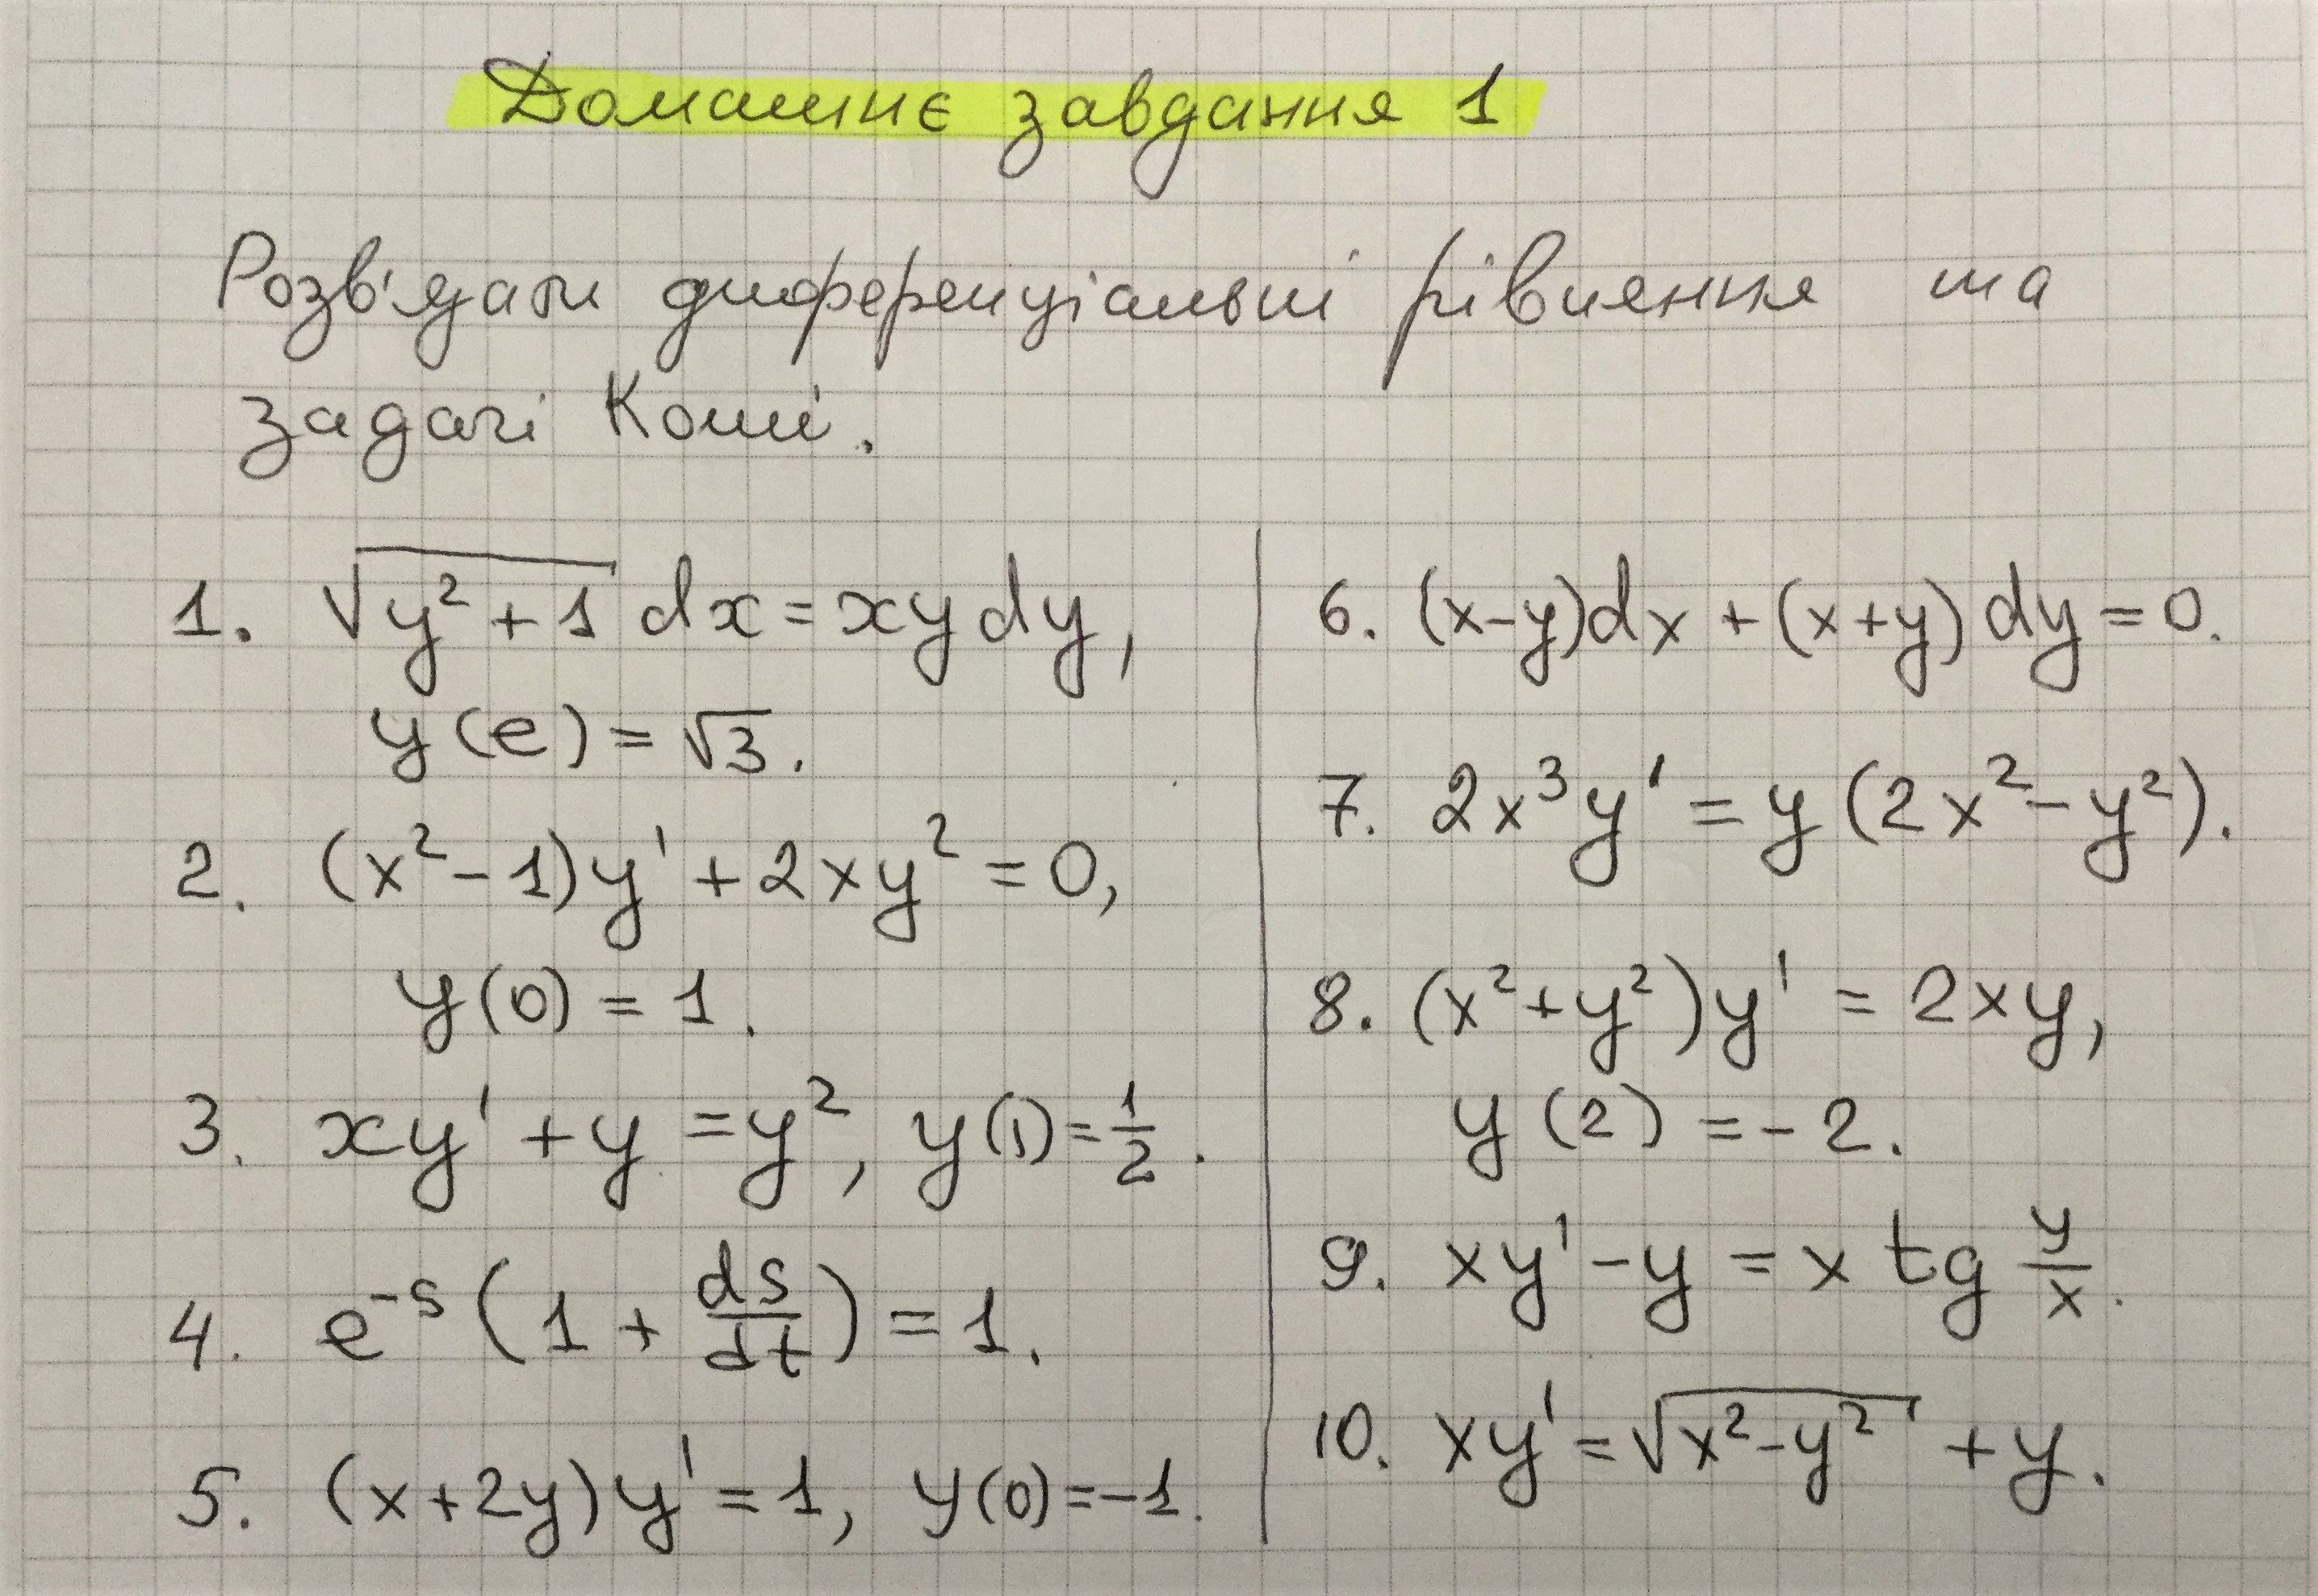 Домашнє завдання 1
Розв'язати диференціальні рівняння та
задачі Коші.
1. √(y² + 1) dx = xy dy,
y(e) = √3.
2. (x² - 1)y' + 2xy² = 0,
y(0) = 1.
3. xy' + y = y², y(1) = 1/2.
4. e^(-s) (1 + ds/dt) = 1.
5. (x + 2y)y' = 1, y(0) = -1.
6. (x - y)dx + (x + y)dy = 0.
7. 2x³y' = y(2x² - y²).
8. (x² + y²)y' = 2xy,
y(2) = -2.
9. xy' - y = x tg y/x.
10. xy' = √(x² - y²) + y.